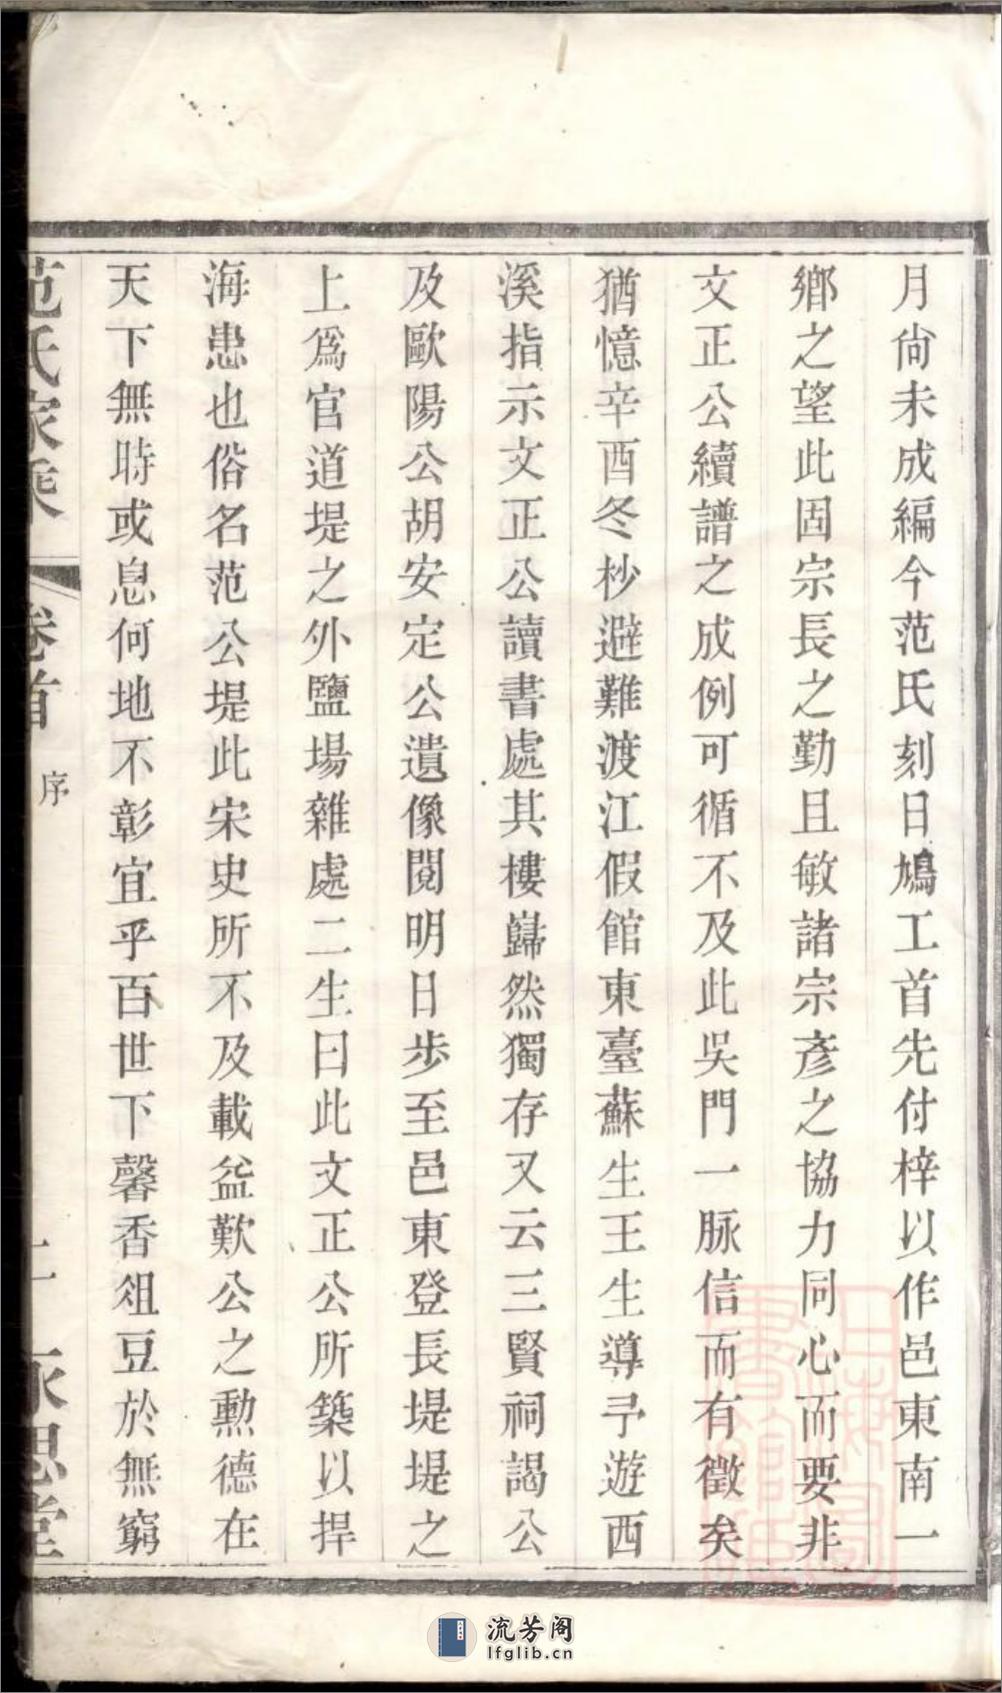 月尙未成編今范氏刻日鳩工首先付梓以作邑東南一
鄉之望此固宗長之勤且敏諸宗彥之協力同心而要非
文正公續譜之成例可循不及此吳門一脉信而有徵矣
猶憶辛酉冬杪避難渡江假館東臺蘇生王生導予遊西
溪指示文正公讀書處其樓巋然獨存又云三賢祠謁公
及歐陽公胡安定公遺像閱明日步至邑東登長堤堤之
上爲官道堤之外鹽場雜處二生曰此文正公所築以捍
海患也俗名范公堤此宋史所不及載益歎公之勳德在
天下無時或息何地不彰宜乎百世下馨香俎豆於無窮
范氏家乘 卷首 序 永思堂
流芳阁
lfglib.cn